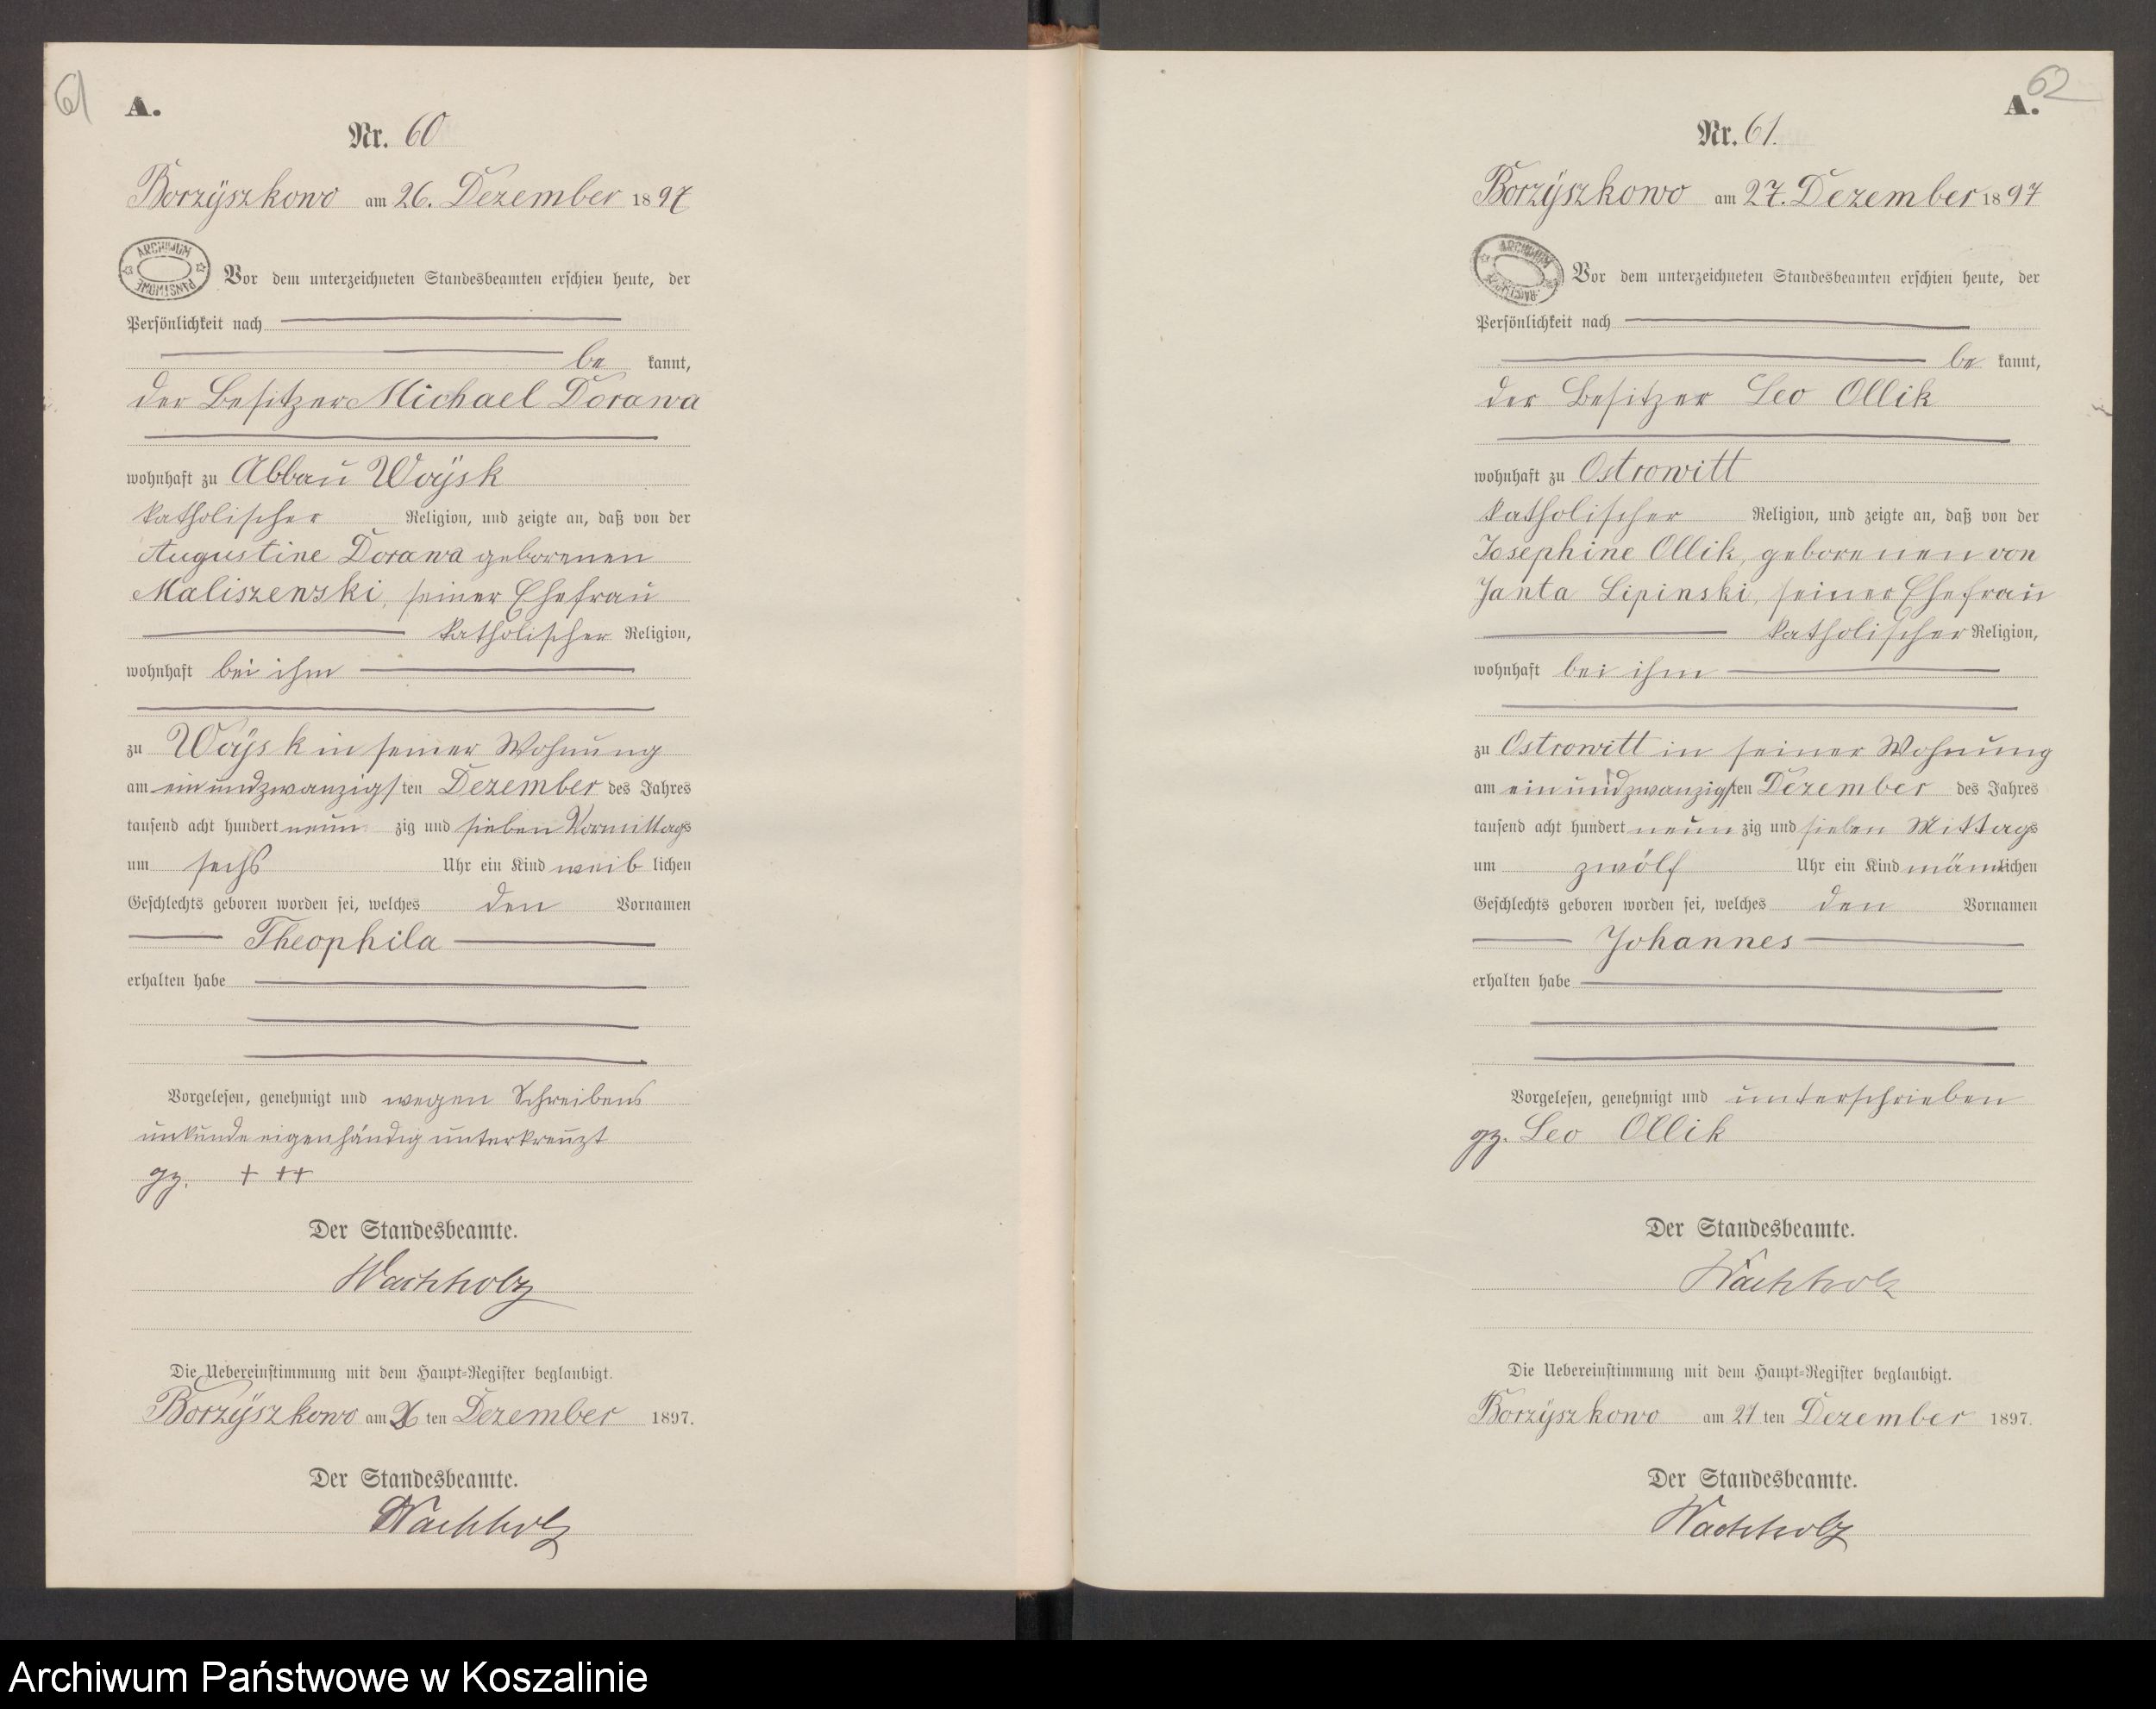 61
A.
Nr. 60
Borzÿszkowo am 26. Dezember 1897
ARCHIWUM PAŃSTWOWE
Vor dem unterzeichneten Standesbeamten erschien heute, der
Persönlichkeit nach
be kannt,
der Besitzer Michael Dorawa
wohnhaft zu Abbau Woÿsk
katholischer Religion, und zeigte an, daß von der
Augustine Dorawa geborenen
Maliszewski, seiner Ehefrau
katholischer Religion,
wohnhaft bei ihm
zu Woÿsk in seiner Wohnung
am einundzwanzigsten Dezember des Jahres
tausend acht hundert neun zig und sieben Vormittags
um sechs Uhr ein Kind weib lichen
Geschlechts geboren worden sei, welches den Vornamen
Theophila
erhalten habe
Vorgelesen, genehmigt und wegen Schreibens
unkunde eigenhändig unterkreuzt
gz. + ++
Der Standesbeamte.
Wachholz
Die Uebereinstimmung mit dem Haupt-Register beglaubigt.
Borzÿszkowo am 26 ten Dezember 1897.
Der Standesbeamte.
Wachholz
62
A.
Nr. 61.
Borzÿszkowo am 27. Dezember 1897
ARCHIWUM PAŃSTWOWE
Vor dem unterzeichneten Standesbeamten erschien heute, der
Persönlichkeit nach
be kannt,
der Besitzer Leo Ollik
wohnhaft zu Ostrowitt
katholischer Religion, und zeigte an, daß von der
Josephine Ollik, geborenen von
Janta Lipinski, seiner Ehefrau
katholischer Religion,
wohnhaft bei ihm
zu Ostrowitt in seiner Wohnung
am einundzwanzigsten Dezember des Jahres
tausend acht hundert neun zig und sieben Mittags
um zwölf Uhr ein Kind männlichen
Geschlechts geboren worden sei, welches den Vornamen
Johannes
erhalten habe
Vorgelesen, genehmigt und unterschrieben
gz. Leo Ollik
Der Standesbeamte.
Wachholz
Die Uebereinstimmung mit dem Haupt-Register beglaubigt.
Borzÿszkowo am 27 ten Dezember 1897.
Der Standesbeamte.
Wachholz
Archiwum Państwowe w Koszalinie